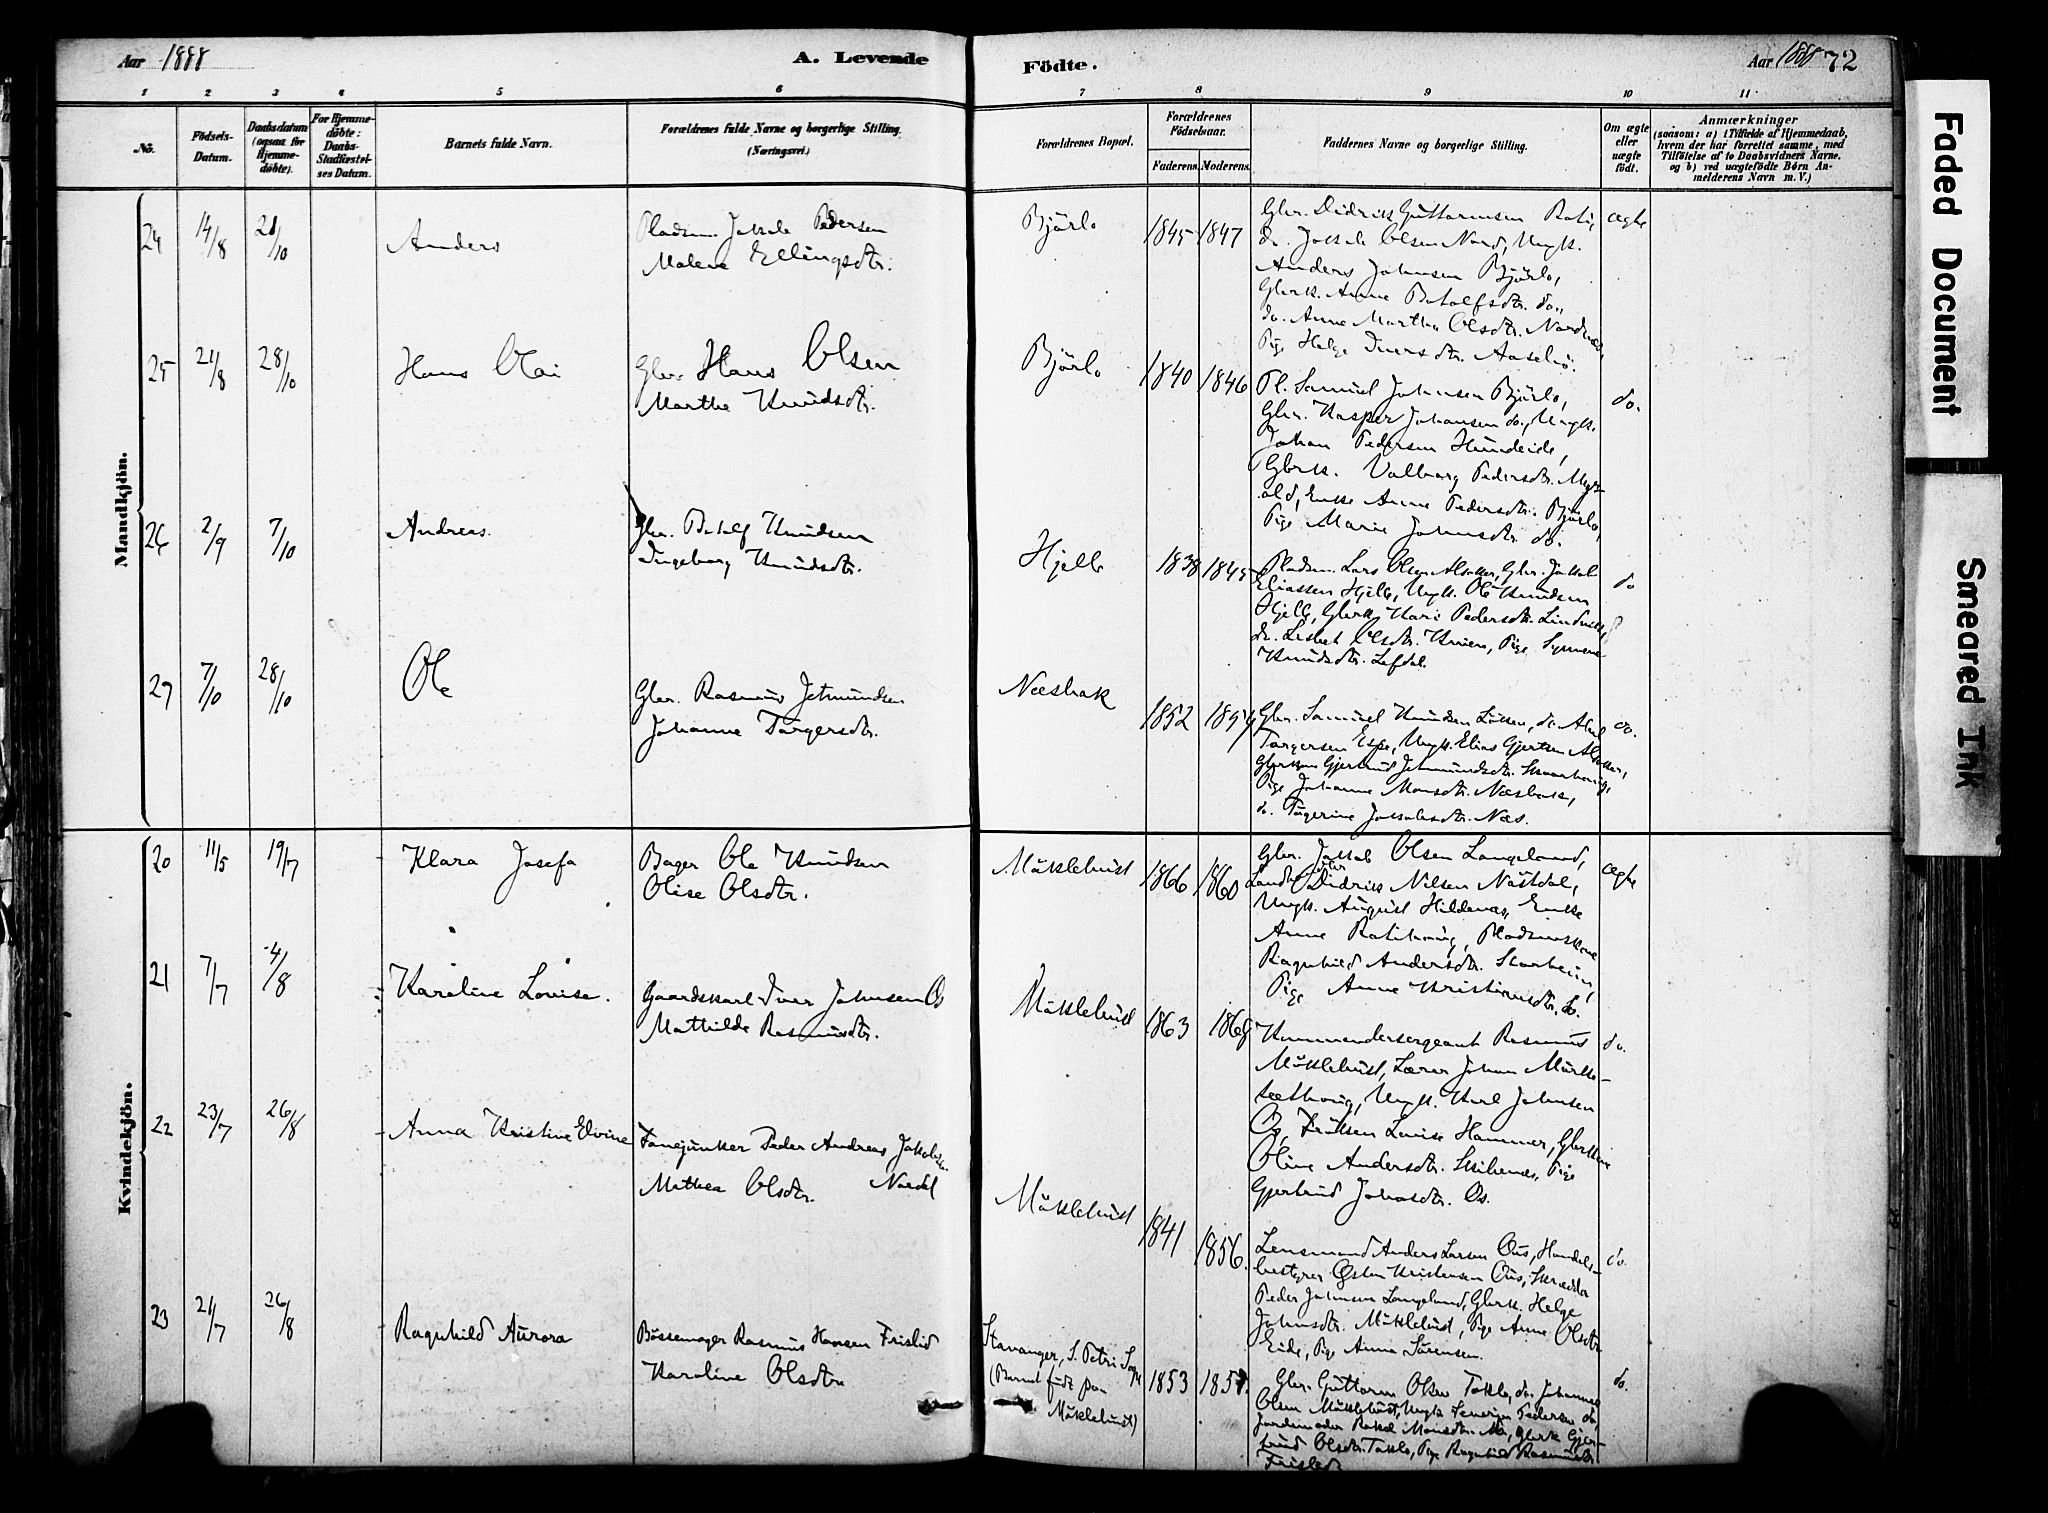 Aar 1888
A. Levende
Födte.
Aar 1888 72
1 2 3 4 5 6 7 8 9 10 11
Nö.
Födsels-
Datum.
Daabsdatum
(ogsaa for
Hjemme-
döbte).
For Hjemme-
döbte:
Daabs-
Stadfæstel-
ses Datum.
Barnets fulde Navn.
Forældrenes fulde Navne og borgerlige Stilling.
(Næringsvei.)
Forældrenes Bopæl.
Forældrenes
Födselsaar.
Faderens. Moderens.
Faddernes Navne og borgerlige Stilling.
Om ægte
eller
uægte
födt.
Anmærkninger
(saasom: a) i Tilfælde af Hjemmedaab,
hvem der har forrettet samme, med
Tilföielse af to Daabsvidners Navne.
og b) ved uægtefödte Börn An-
melderens Navn m. V.)
Mandkjön.
24 14/8 28/10 Anders
Pladsm. Jakob Pedersen
Malene Ellingsdtr.
Bjørlo 1845 1847
Gbr. Didrik Guttormsen Roti,
do. Jakob Olsen Nord, Ungk.
Anders Johnsen Bjørlo,
Gbrk. Anne Botolfsdtr. do.,
do. Anne Martha Olsdtr.
Pige Helge Iversdtr.
ægte
25 21/8 28/10 Hans Olai
Gbr. Hans Olsen
Marthe Knudsdtr.
Bjørlo 1840 1846
Pl. Samuel Johnsen Bjørlo,
Gbr. Kasper Johansen do., Ungk.
Johan Pedersen Hundeide,
Gbrk. Valborg Pedersdtr. Myk-
old, Enke Anne Pedersdtr. Bjørlo,
Pige Marie Johnsdtr. do.
do.
26 2/9 7/10 Andreas.
Gbr. Botolf Knudsen
Ingeborg Knudsdtr.
Hjelle 1838 1845
Pladsm. Lars Olsen Alsaker, Gbr. Jakob
Eliassen Hjelle, Ungk. Ole Knudsen
Hjelle, Gbrk. Kari Pedersdtr.
do. Lisbet Olsdtr. Pige Synneve
Knudsdtr. Lefdal.
do
27 7/10 28/10 Ole
Gbr. Rasmus Jetmundsen
Johanne Torgersdtr.
Næsbak 1852
Gbr. Samuel Knudsen do.
Torgersen Espe, Ungk. Elias Gjertsen Alsaker,
Gbrkone Gjertrud Jetmundsdtr.
Pige Johanne Monsdtr. Næsbak,
do. Torgerine Jakobsdtr. Næs.
do.
Kvindekjön.
20 11/5 19/7 Klara Josefa
Bager Ole Knudsen
Olise Olsdtr.
Mÿklebust 1866 1860
Gbr. Jakob Olsen Langeland,
Landhandler Didrik Nilsen Nÿstdal,
Ungk. August Hildenæs, Enke
Anne Rotihaug, Pladsmkone
Ragnhild Andersdtr. Starheim,
Pige Anne Kristiansdtr. do.
ægte
21 7/7 4/8 Karoline Lovise.
Gaardskarl Iver Johnsen Os
Mathilde Rasmusdtr.
Mÿklebust 1863
Kommandersergeant Rasmus
Mÿklebust, Lærer Johan Mÿkle-
Ungk. Karl Johnsen
Os, Frøken Lovise Hammer, Gbrkone
Oline Andersdtr. Skibenæs, Pige
Gjertrud Johnsdtr. Os.
do.
22 23/7 26/8 Anna Kristine Elvine
Fanejunker Peder Andreas Jakobsen
Mathea Olsdtr. Nordal
Mÿklebust 1841 1856.
Lensmand Anders Larsen Ous, Handels-
bestyrer Østen Kristensen Ous, Skrædder
Peder Johnsen Langeland, Gbrk. Helge
Johnsdtr. Mÿklebust, Pige Anne Olsdtr.
Eide, Pige Anna Sørensen.
do.
23 21/7 26/8 Ragnhild Aurora
Bøssemager Rasmus Hansen Frislid
Karoline Olsdtr
Stavanger, S. Petri Sogn
(Barnet født paa
Mÿklebust)
1853
Gbr. Guttorm Olsen Taklo, do. Johannes
Olsen Mÿklebust, Ungk Severin Pedersen do.
Jordemoder Rakel Monsdtr. Gbrk. Gjer-
trud Olsdtr. Taklo, Pige Ragnhild Rasmusdtr
Frislid
do.
Faded Document
Smeared Ink